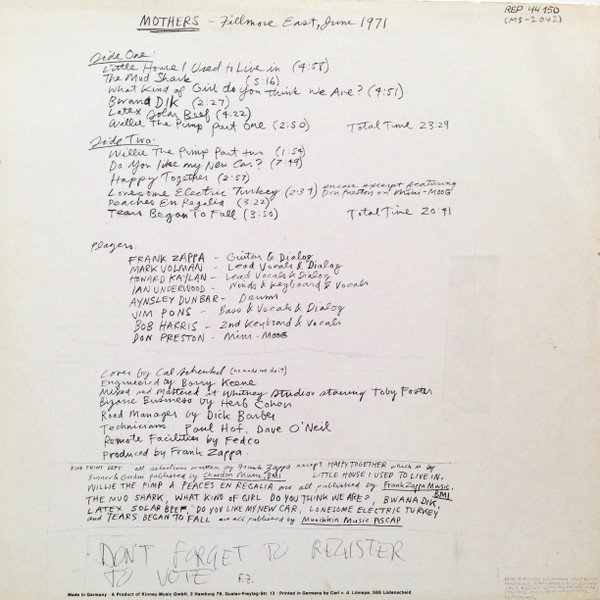 MOTHERS - Fillmore East, June 1971
REP 44 150
(MS-2042)
Side One:
Little House I Used to Live in (4:58)
The Mud Shark (5:16)
What Kind of Girl do you Think we Are? (4:51)
Bwana DIK (2:27)
Latex Solar Beef (4:22)
Willie The Pimp Part One (2:50) Total Time 23:29
Side Two:
Willie The Pimp Part two (1:54)
Do You like my New Car? (7:49)
Happy Together (2:57)
Lonesome Electric Turkey (2:34) encore excerpt featuring Don Preston on Mini-MOOG
Peaches En Regalia (3:22)
Tears Began To Fall (3:50) Total Time 20:41
Players:
FRANK ZAPPA - Guitar & Dialog
MARK VOLMAN - Lead Vocals & Dialog
HOWARD KAYLAN - Lead Vocals & Dialog
IAN UNDERWOOD - Winds & Keyboard & Vocals
AYNSLEY DUNBAR - Drums
JIM PONS - Bass & Vocals & Dialog
BOB HARRIS - 2nd Keyboard & Vocals
DON PRESTON - Mini-MOOG
Cover by Cal Schenkel (he made me do it)
Engineered by Barry Keene
Mixed and Mastered at Whitney Studios starring Toby Foster
Bizarre Business by Herb Cohen
Road Manager by Dick Barber
Technicians Paul Hof, Dave O'Neil
Remote Facilities by Fedco
Produced by Frank Zappa
FINE PRINT DEPT: all selections written by Frank Zappa except HAPPY TOGETHER which is by
Bonner & Gordon published by Chardon Music, BMI LITTLE HOUSE I USED TO LIVE IN,
WILLIE THE PIMP & PEACES EN REGALIA are all published by Frank Zappa Music, BMI
THE MUD SHARK, WHAT KIND OF GIRL DO YOU THINK WE ARE?, BWANA DIK,
LATEX SOLAR BEEF, DO YOU LIKE MY NEW CAR, LONESOME ELECTRIC TURKEY
and TEARS BEGAN TO FALL are all published by Munchkin Music ASCAP
DON'T FORGET TO REGISTER
TO VOTE F.Z.
Made in Germany · A Product of Kinney Music GmbH, 2 Hamburg 76, Gustav-Freytag-Str. 13 · Printed in Germany by Carl v. d. Linnepe, 588 Lüdenscheid